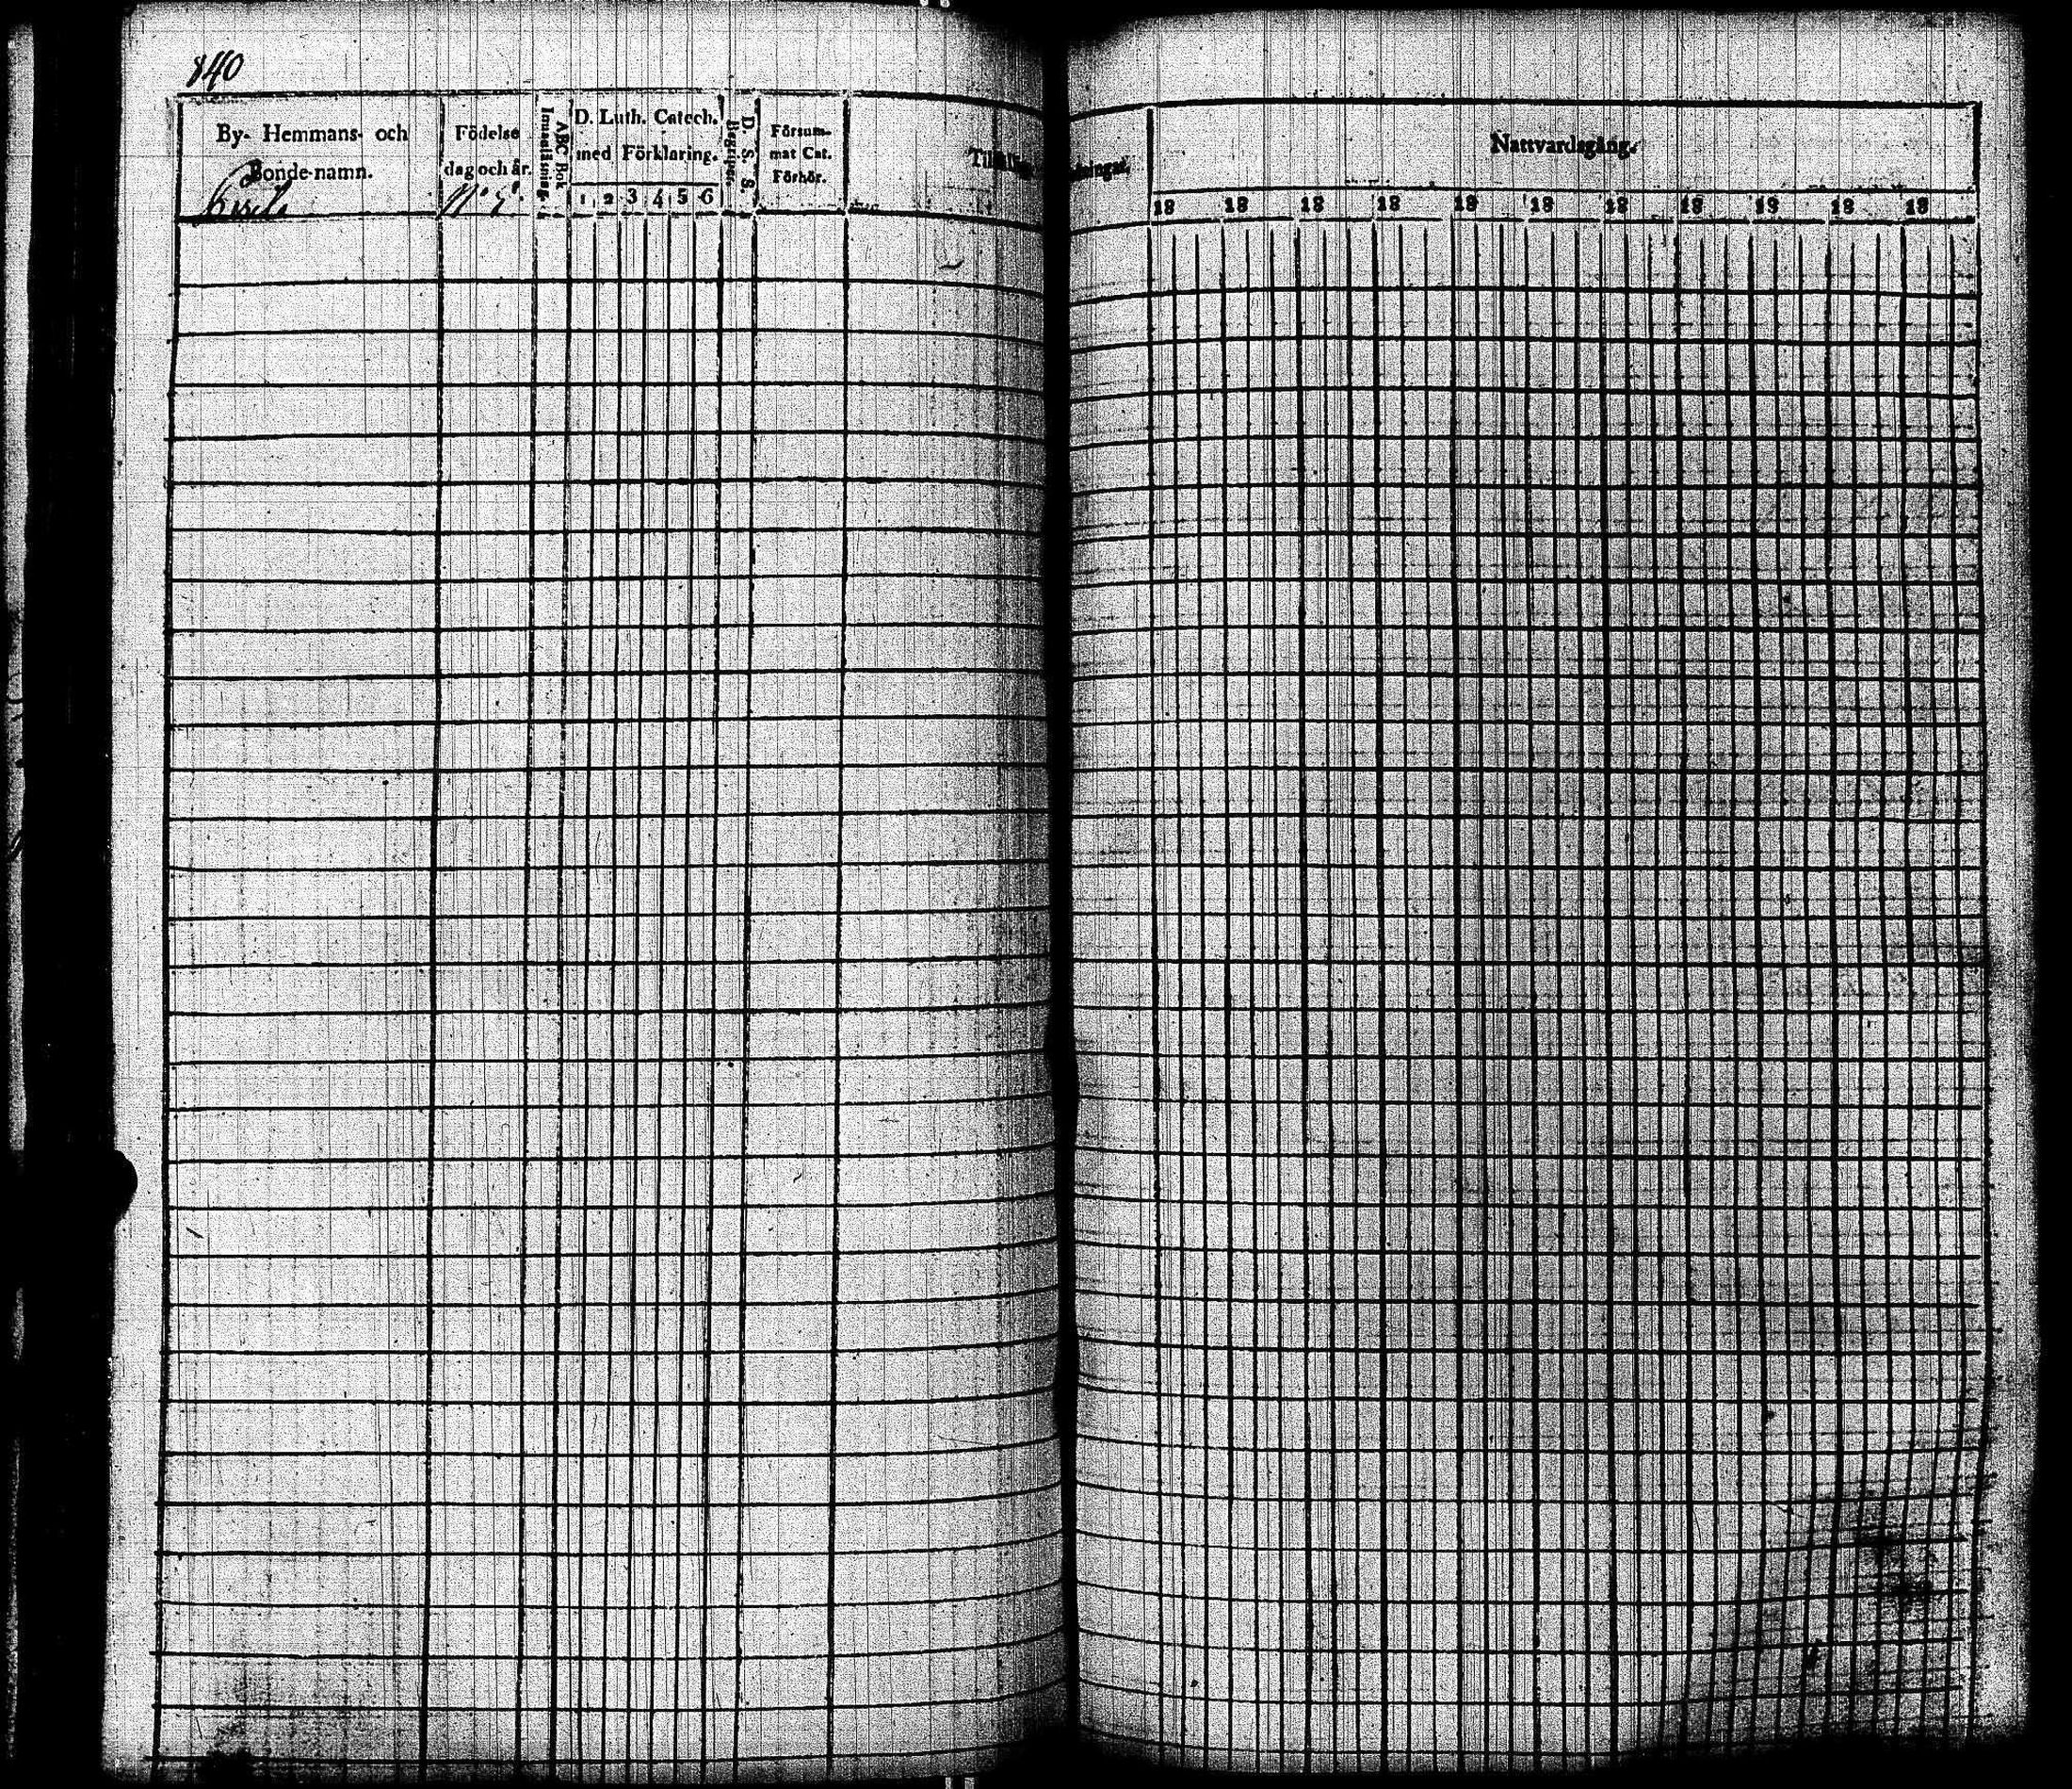 840
By- Hemmans- och
Bonde-namn.
Födelse
dag och år.
No 5.
Innanläsning.
ABC Bok
D. Luth. Catech.
med Förklaring.
1 2 3 4 5 6
Begriper.
D. S. S.
Försum-
mat Cat.
Förhör.
Nattvardsgång.
18 18 18 18 18 18 18 18 18 18 18